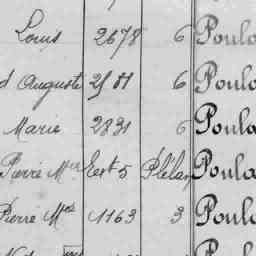 Louis 2678 6 Poulo
d Auguste 6 Poulo
Marie 2831 6 Poula
Pierre Mie Rest 5 Plélan Poula
Pierre Mie 1163 3 Poulo